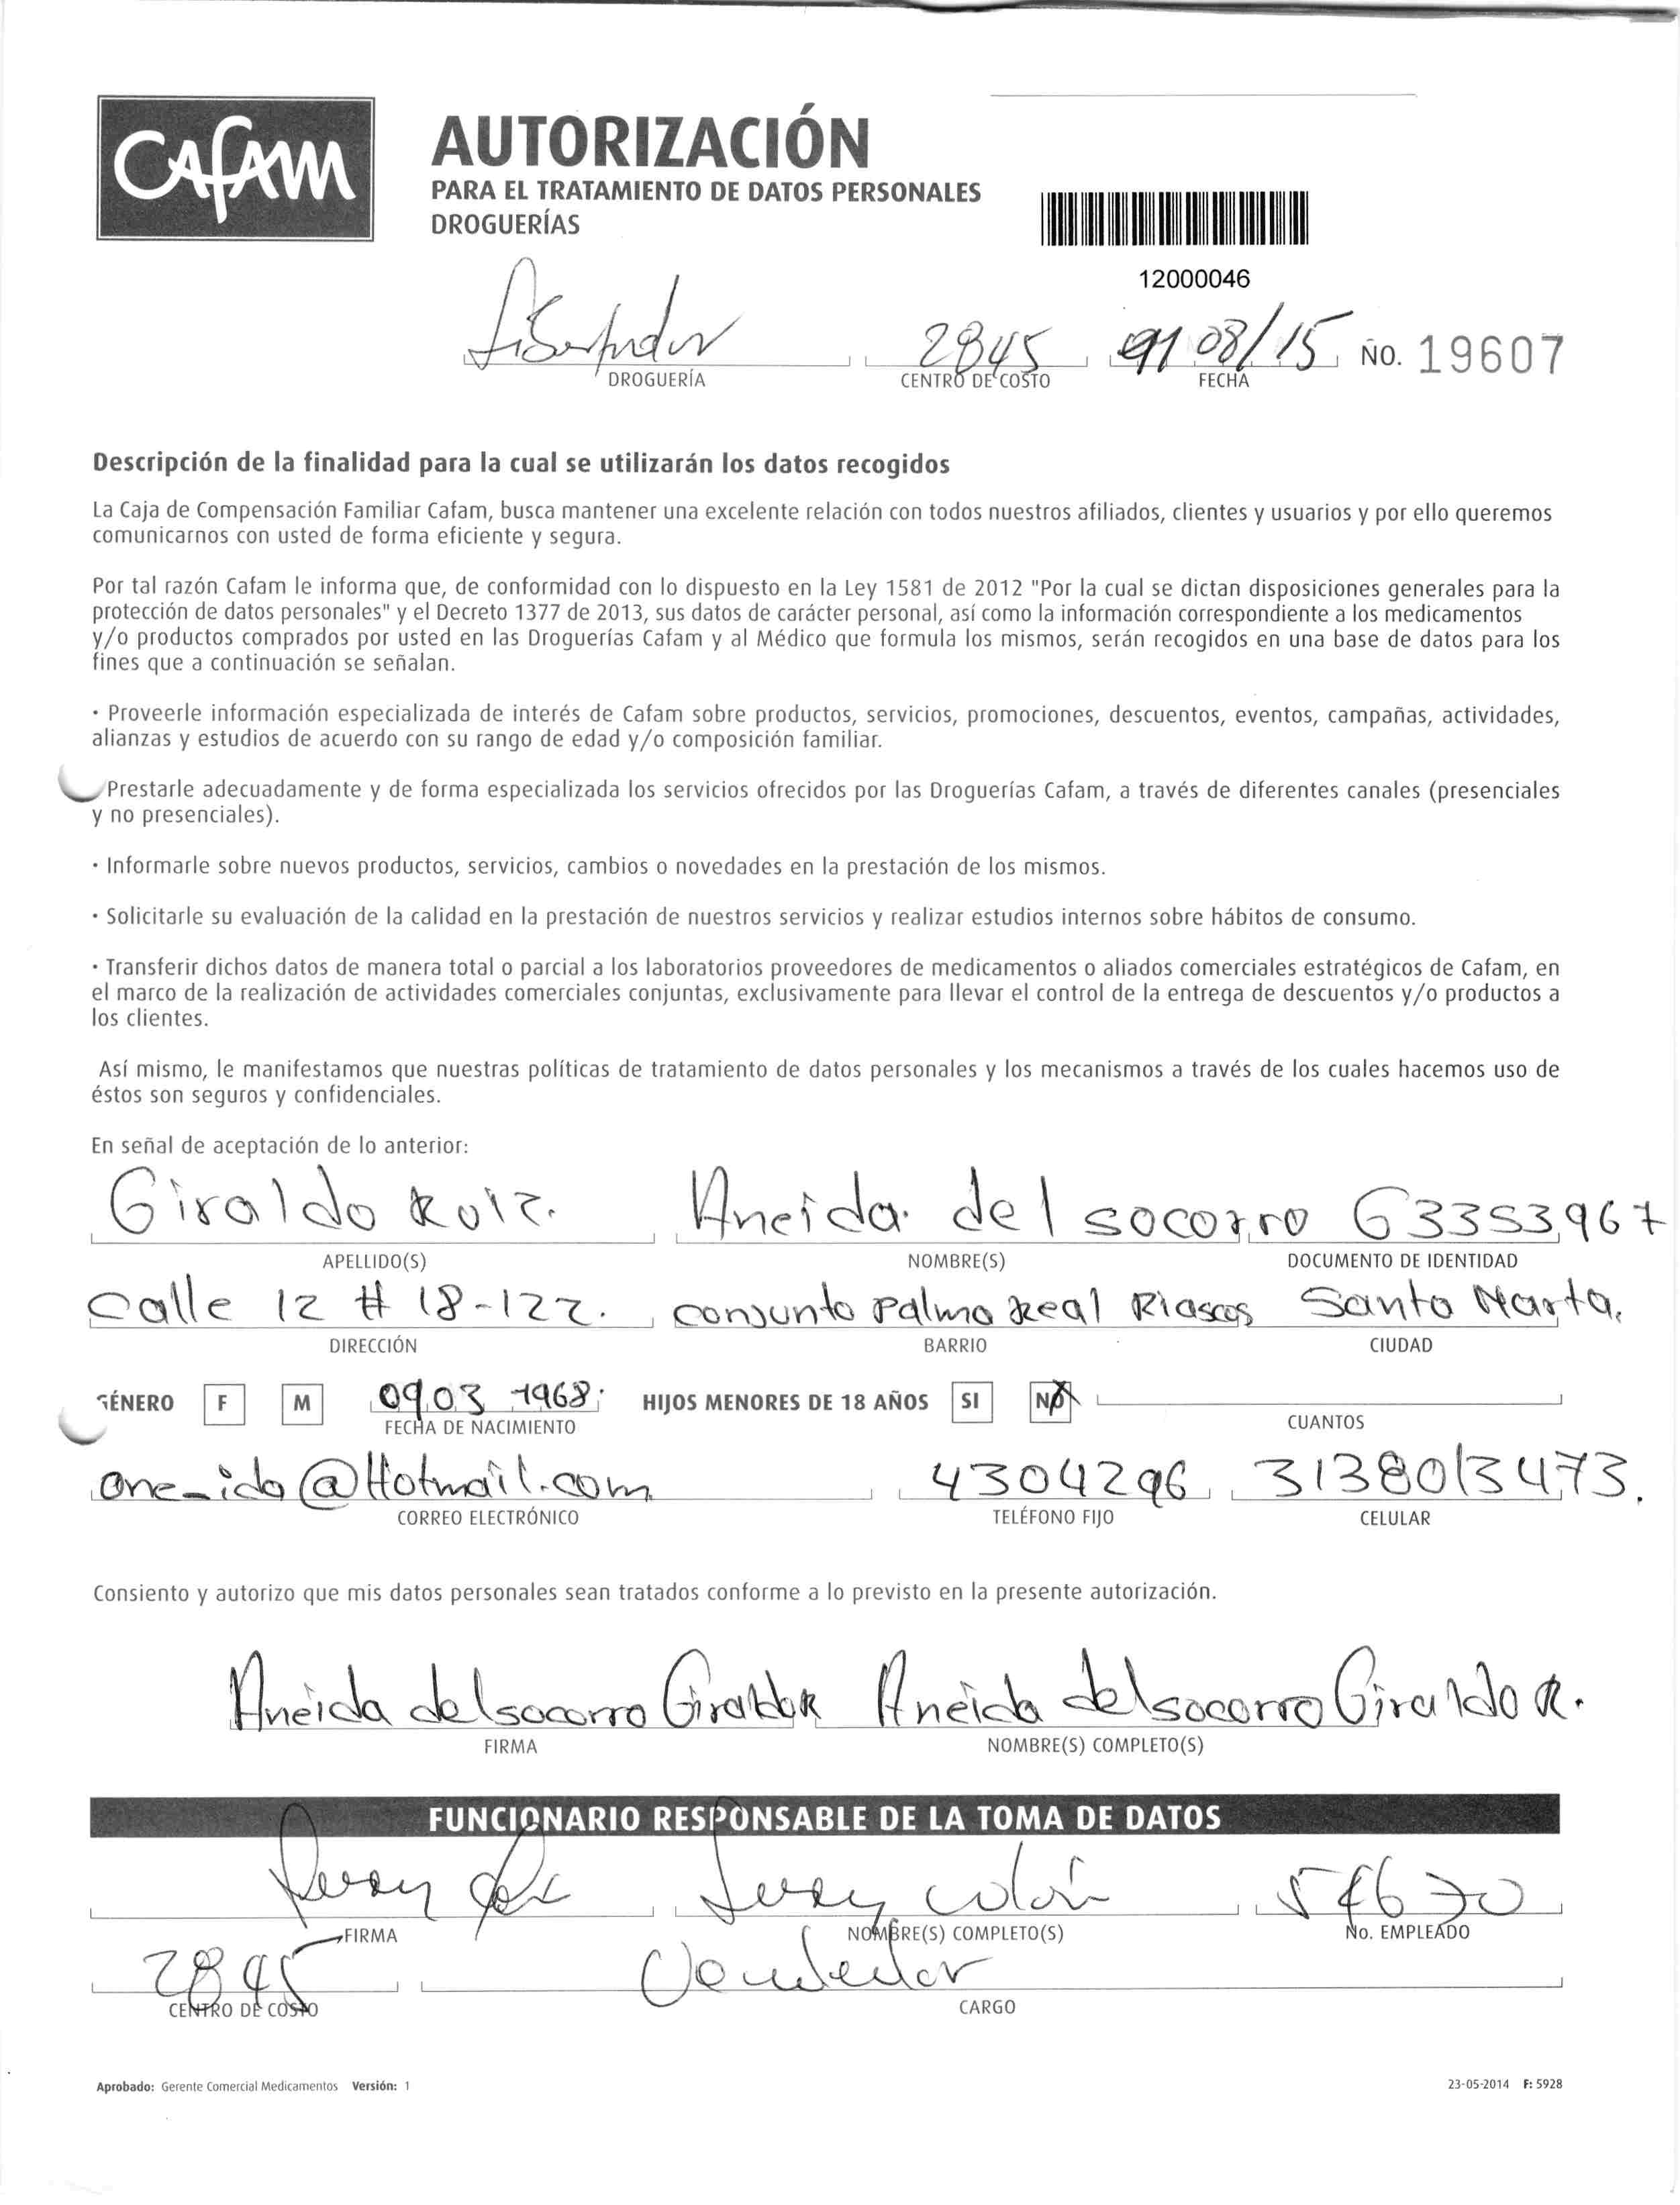 CAFAM
AUTORIZACIÓN
PARA EL TRATAMIENTO DE DATOS PERSONALES
DROGUERÍAS
12000046
Libertador 2845 08/15 No. 19607
DROGUERÍA CENTRO DE COSTO FECHA
Descripción de la finalidad para la cual se utilizarán los datos recogidos
La Caja de Compensación Familiar Cafam, busca mantener una excelente relación con todos nuestros afiliados, clientes y usuarios y por ello queremos
comunicarnos con usted de forma eficiente y segura.
Por tal razón Cafam le informa que, de conformidad con lo dispuesto en la Ley 1581 de 2012 "Por la cual se dictan disposiciones generales para la
protección de datos personales" y el Decreto 1377 de 2013, sus datos de carácter personal, así como la información correspondiente a los medicamentos
y/o productos comprados por usted en las Droguerías Cafam y al Médico que formula los mismos, serán recogidos en una base de datos para los
fines que a continuación se señalan.
· Proveerle información especializada de interés de Cafam sobre productos, servicios, promociones, descuentos, eventos, campañas, actividades,
alianzas y estudios de acuerdo con su rango de edad y/o composición familiar.
Prestarle adecuadamente y de forma especializada los servicios ofrecidos por las Droguerías Cafam, a través de diferentes canales (presenciales
y no presenciales).
· Informarle sobre nuevos productos, servicios, cambios o novedades en la prestación de los mismos.
· Solicitarle su evaluación de la calidad en la prestación de nuestros servicios y realizar estudios internos sobre hábitos de consumo.
· Transferir dichos datos de manera total o parcial a los laboratorios proveedores de medicamentos o aliados comerciales estratégicos de Cafam, en
el marco de la realización de actividades comerciales conjuntas, exclusivamente para llevar el control de la entrega de descuentos y/o productos a
los clientes.
Así mismo, le manifestamos que nuestras políticas de tratamiento de datos personales y los mecanismos a través de los cuales hacemos uso de
éstos son seguros y confidenciales.
En señal de aceptación de lo anterior:
Giraldo Ruiz. Aneida del socorro 63353967
APELLIDO(S) NOMBRE(S) DOCUMENTO DE IDENTIDAD
Calle 12 # 18-122. conjunto Palma Real Riascos Santa Marta.
DIRECCIÓN BARRIO CIUDAD
GÉNERO F M 09 03 1968. HIJOS MENORES DE 18 AÑOS SI NO
FECHA DE NACIMIENTO CUANTOS
ane_ida@Hotmail.com 4304296 3138013473.
CORREO ELECTRÓNICO TELÉFONO FIJO CELULAR
Consiento y autorizo que mis datos personales sean tratados conforme a lo previsto en la presente autorización.
Aneida del socorro Giraldo R Aneida del socorro Giraldo R.
FIRMA NOMBRE(S) COMPLETO(S)
FUNCIONARIO RESPONSABLE DE LA TOMA DE DATOS
colón
FIRMA NOMBRE(S) COMPLETO(S) No. EMPLEADO
2845 Vendedor
CENTRO DE COSTO CARGO
Aprobado: Gerente Comercial Medicamentos Versión: 1 23-05-2014 F: 5928